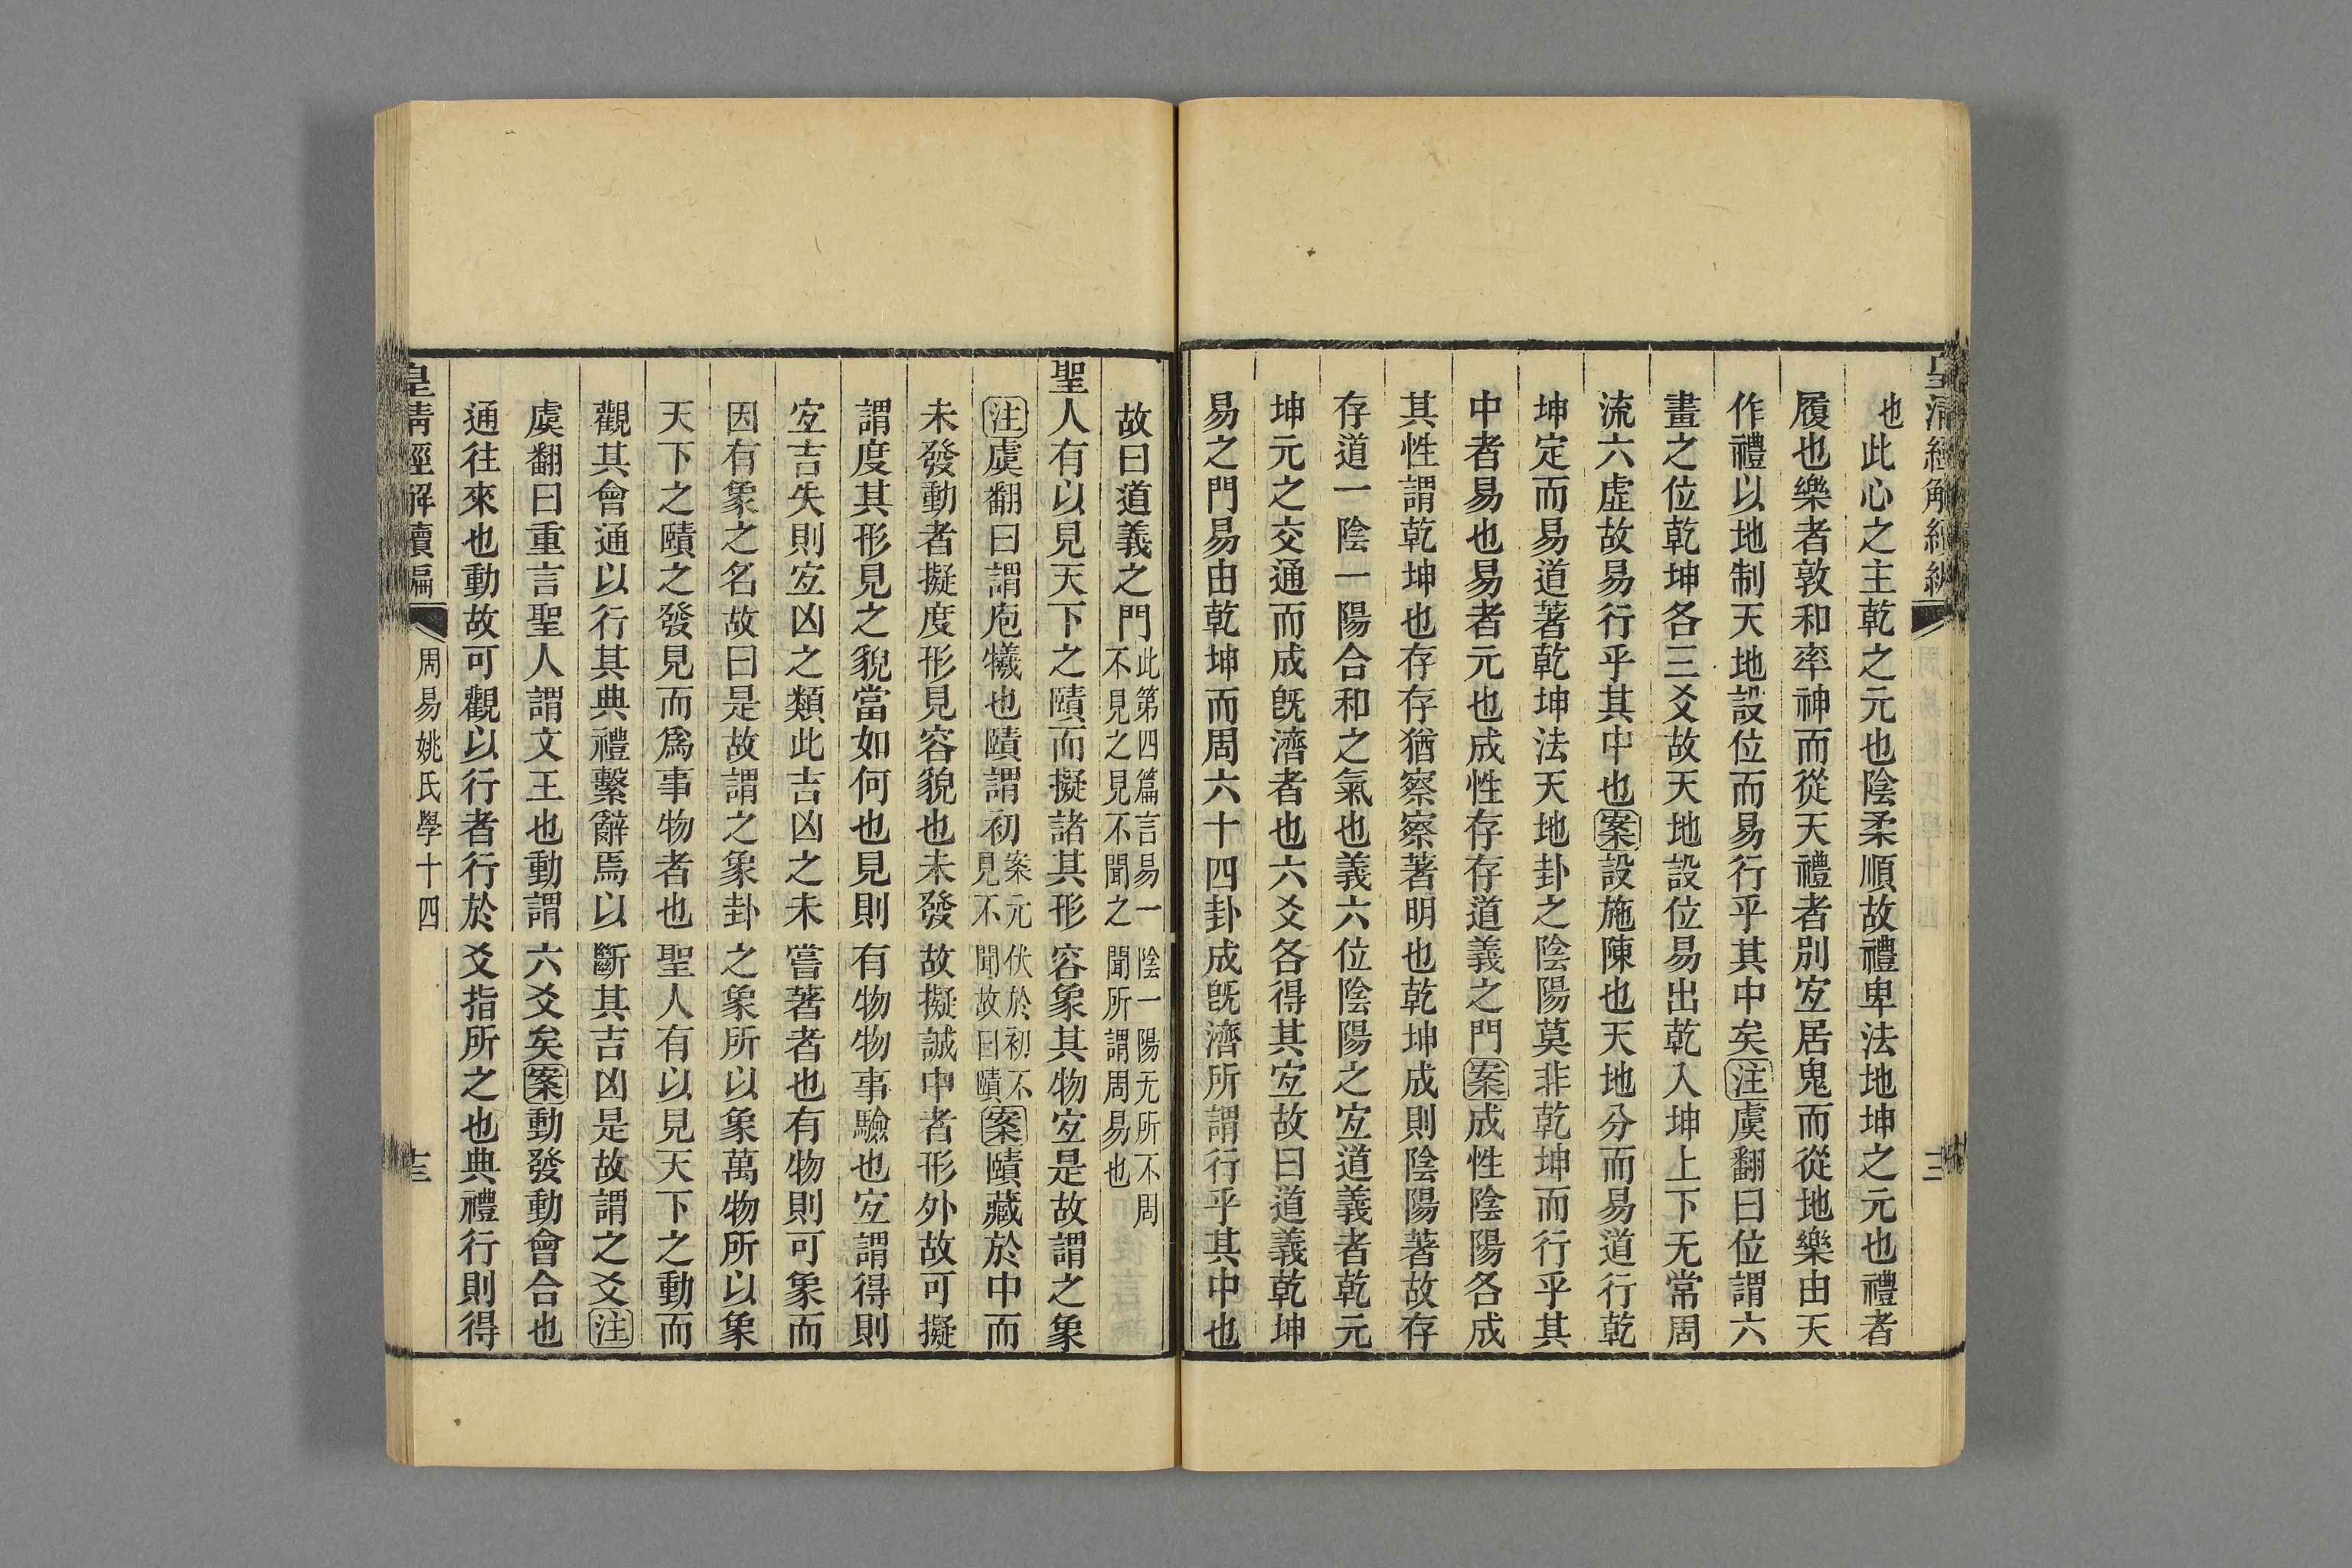 也此心之主乾之元也陰柔順故禮卑法地坤之元也禮者
履也樂者敦和率神而從天禮者別宐居鬼而從地樂由天
作禮以地制天地設位而易行乎其中矣注虞翻曰位謂六
畫之位乾坤各三爻故天地設位易出乾入坤上下无常周
流六虛故易行乎其中也案設施陳也天地分而易道行乾
坤定而易道著乾坤法天地卦之陰陽莫非乾坤而行乎其
中者易也易者元也成性存存道義之門案成性陰陽各成
其性謂乾坤也存存猶察察著明也乾坤成則陰陽著故存
存道一陰一陽合和之氣也義六位陰陽之宐道義者乾元
坤元之交通而成旣濟者也六爻各得其宐故曰道義乾坤
易之門易由乾坤而周六十四卦成旣濟所謂行乎其中也
故曰道義之門此第四篇言易一陰一陽无所不周
不見之見不聞之聞所謂周易也
聖人有以見天下之賾而擬諸其形容象其物宐是故謂之象
注虞翻曰謂庖犧也賾謂初案元伏於初不
見不聞故曰賾案賾藏於中而
未發動者擬度形見容貌也未發故擬誠中者形外故可擬
謂度其形見之貌當如何也見則有物物事驗也宐謂得則
宐吉失則宐凶之類此吉凶之未嘗著者也有物則可象而
因有象之名故曰是故謂之象卦之象所以象萬物所以象
天下之賾之發見而爲事物者也聖人有以見天下之動而
觀其會通以行其典禮繫辭焉以斷其吉凶是故謂之爻注
虞翻曰重言聖人謂文王也動謂六爻矣案動發動會合也
通往來也動故可觀以行者行於爻指所之也典禮行則得
皇清經解續編 周易姚氏學十四 十三